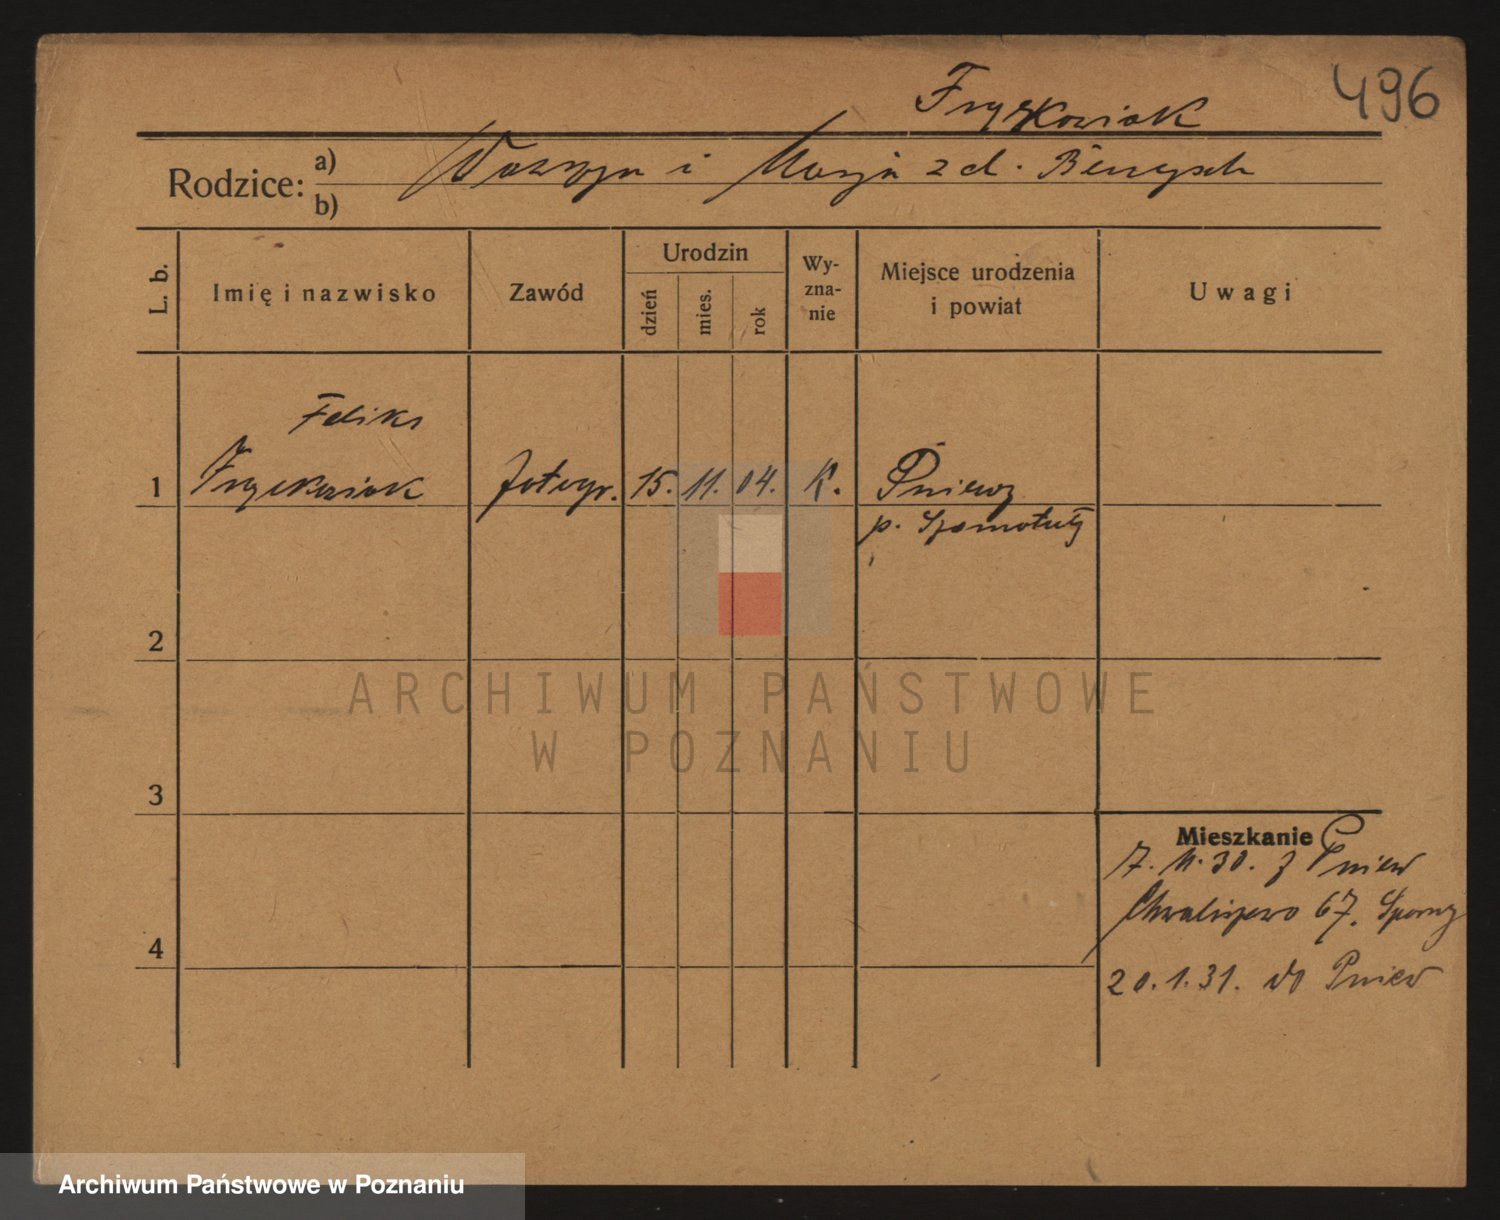 496
Fryckowiak
Rodzice: a) Wawrzyn i Marja z d. Bency
b)
L. b.
Imię i nazwisko
Zawód
Urodzin
dzień
mies.
rok
Wy-
zna-
nie
Miejsce urodzenia
i powiat
Uwagi
Feliks
1 Fryckowiak fotogr. 15. 11. 04. K. Pniewy
p. Szamotuły
2
ARCHIWUM PAŃSTWOWE
W POZNANIU
3
4
Mieszkanie
7. 11. 30. z Pniew
Chwaliszewo 67. Sporny
20. 1. 31. do Pniew
Archiwum Państwowe w Poznaniu